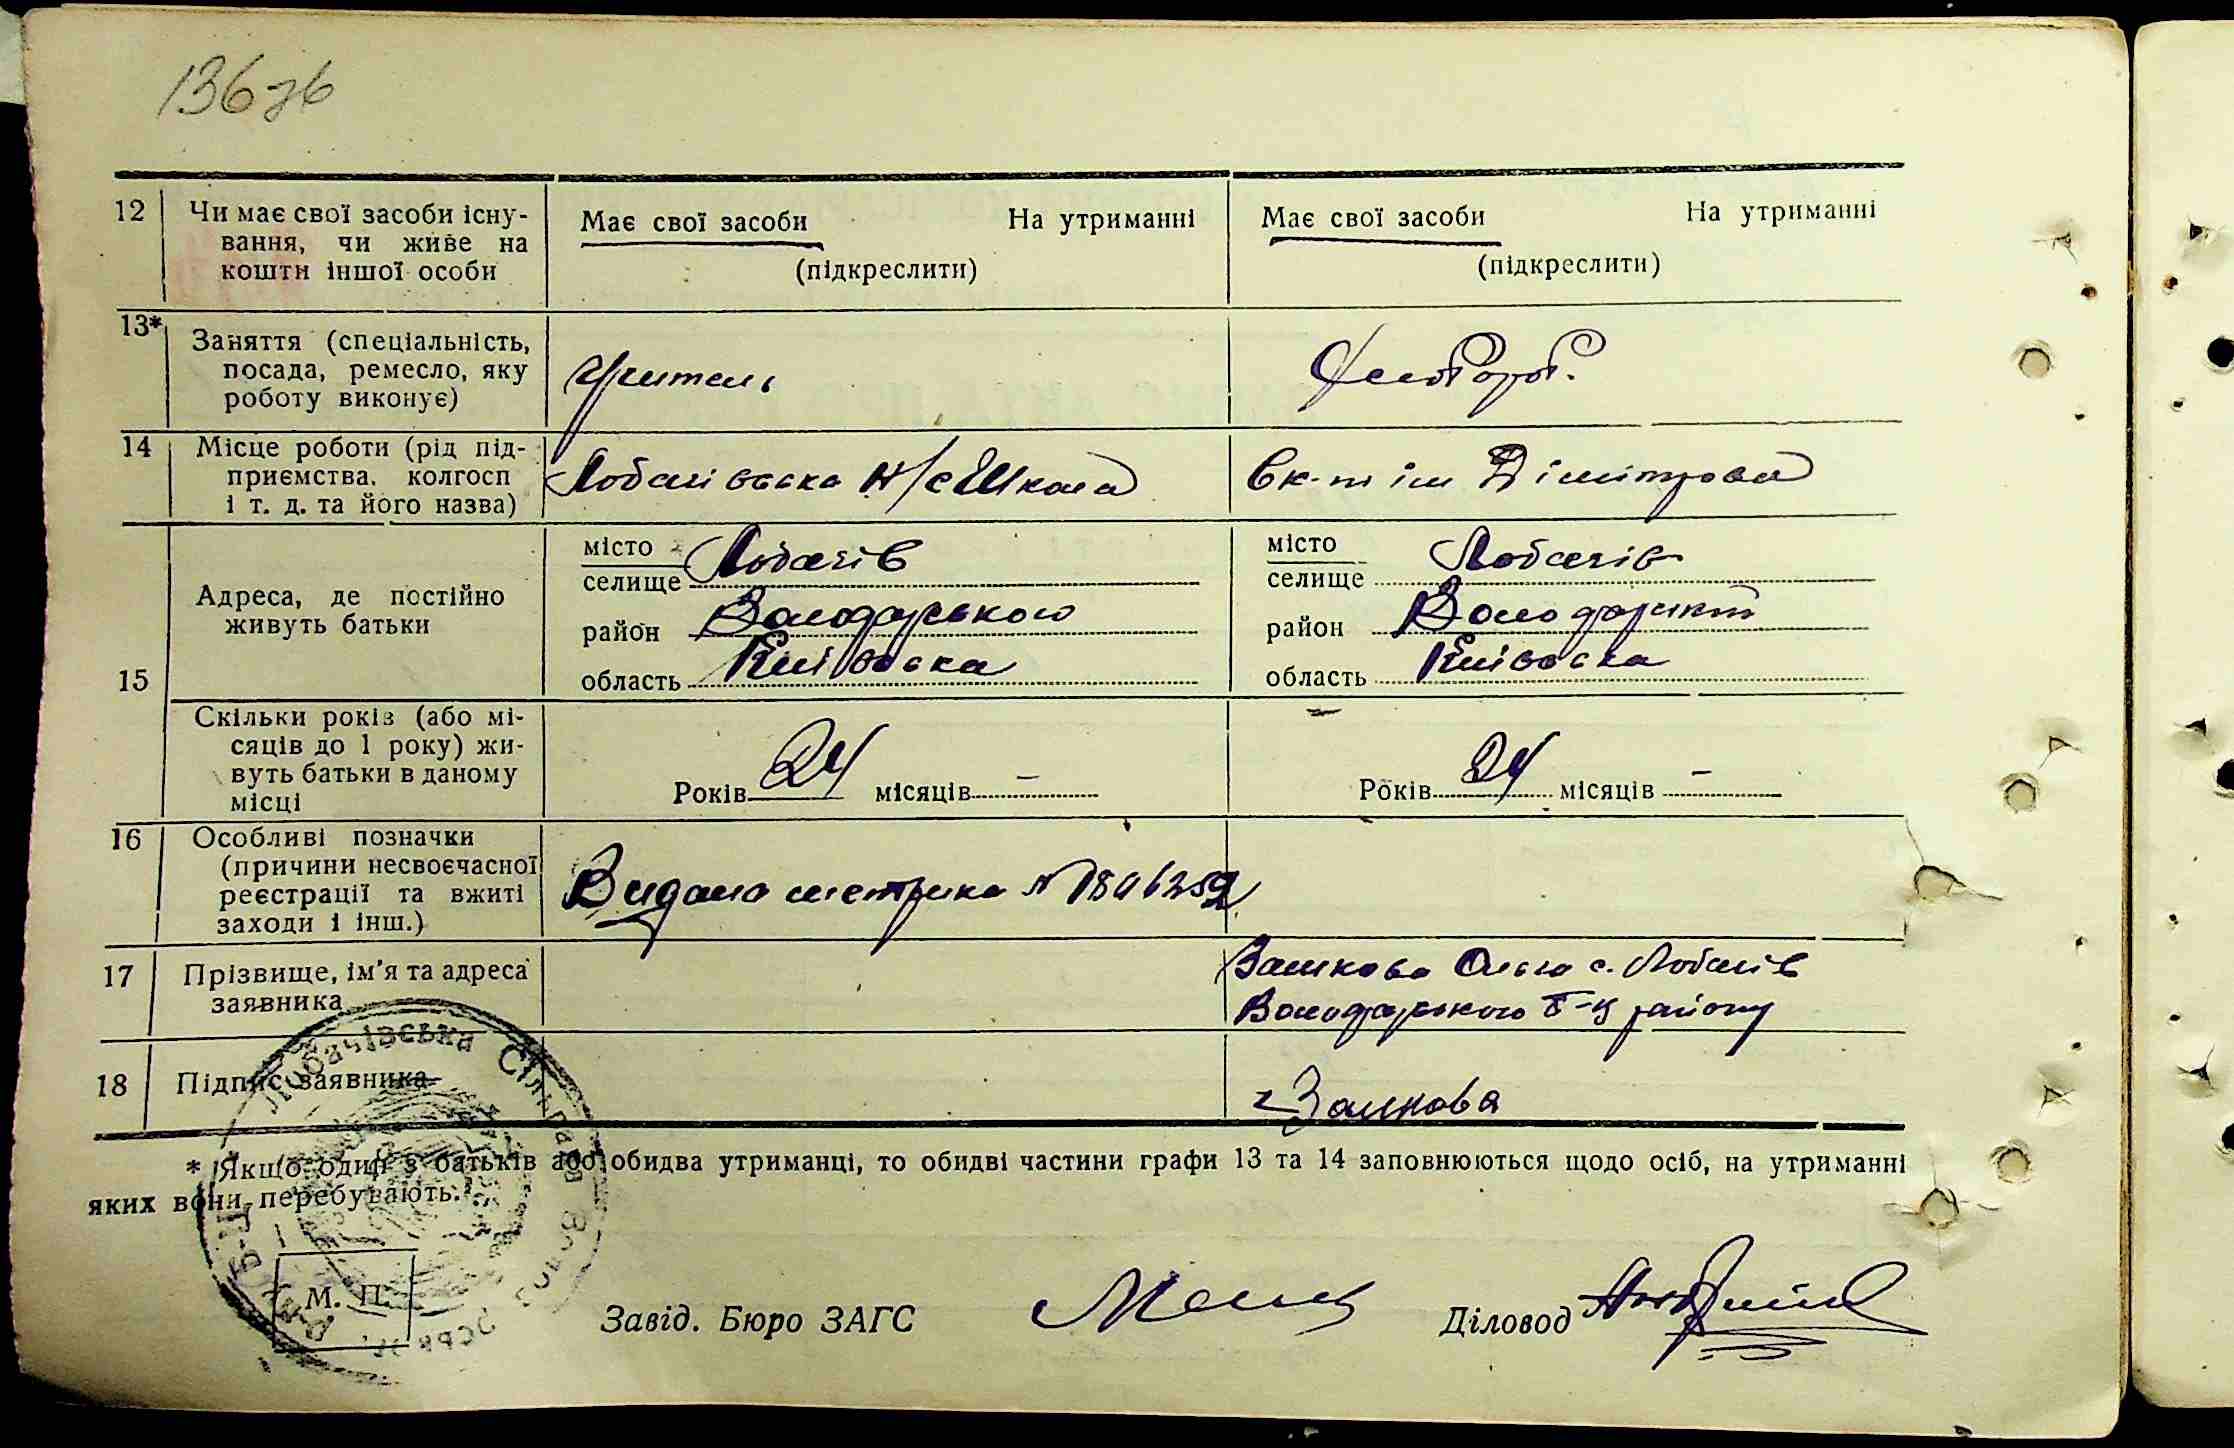 136зв
12 Чи має свої засоби існу- Має свої засоби На утриманні Має свої засоби На утриманні
вання, чи живе на
кошти іншої особи (підкреслити) (підкреслити)
13* Заняття (спеціальність,
посада, ремесло, яку учитель
роботу виконує)
14 Місце роботи (рід під-
приємства, колгосп Лобачівська н/с Школа ім Дімітрова
і т. д. та його назва)
місто Лобачів місто Лобачів
селище селище
15 Адреса, де постійно район Володарського район
живуть батьки область Київська область Київська
Скільки років (або мі-
сяців до 1 року) жи-
вуть батьки в даному Років 24 місяців – Років 24 місяців –
місці
16 Особливі позначки
(причини несвоєчасної
реєстрації та вжиті Видано метрика №
заходи і інш.)
17 Прізвище, ім'я та адреса с. Лобачів
заявника Володарського Б-Ц району
18 Підпис заявника
* Якщо один з батьків або обидва утриманці, то обидві частини графи 13 та 14 заповнюються щодо осіб, на утриманні
яких вони перебувають.
Лобачівська Сільрада
М. П.
Завід. Бюро ЗАГС Діловод